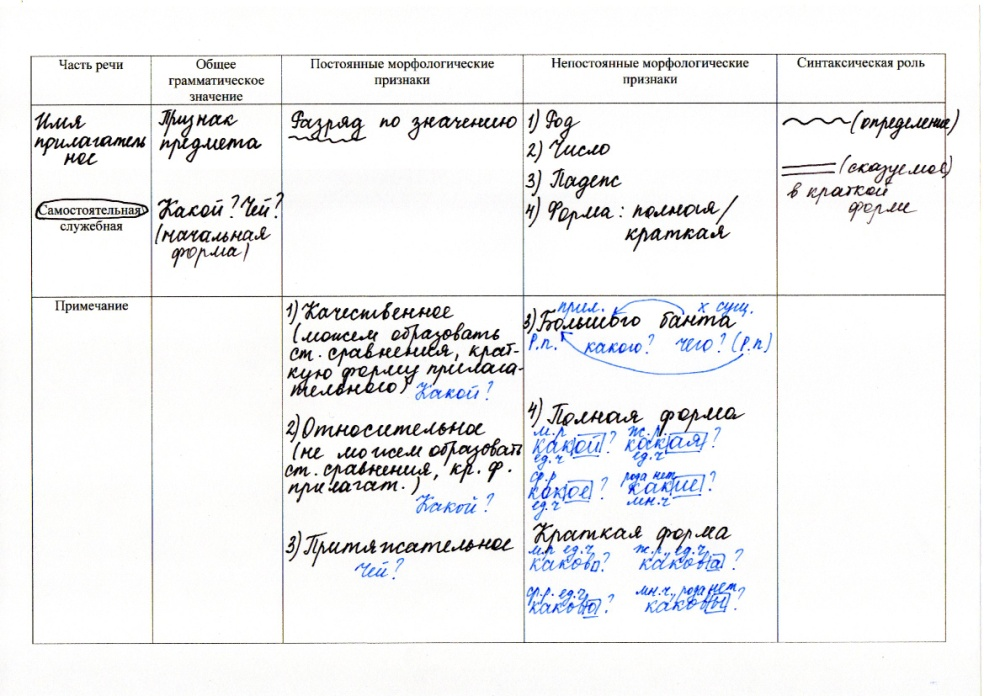 Часть речи
Общее
грамматическое
значение
Постоянные морфологические
признаки
Непостоянные морфологические
признаки
Синтаксическая роль
Имя
прилагатель
ное
Самостоятельная
служебная
Признак
предмета
Какой? Чей?
(начальная
форма)
Разряд по значению
1) Род
2) Число
3) Падеж
4) Форма: полная/
краткая
(определение)
(сказуемое)
в краткой
форме
Примечание
1) Качественное
(можем образовать
ст. сравнения, крат-
кую форму прилага-
тельного)
Какой?
2) Относительное
(не можем образовать
ст. сравнения, кр. ф.
прилагат.)
Какой?
3) Притяжательное
Чей?
прил. х сущ.
3) Большого банта
Р.п. какого? чего? (Р.п)
4) Полная форма
м.р ж.р.
какой? какая?
ед.ч ед.ч
ср.р рода нет
какое? какие?
ед.ч мн.ч
Краткая форма
м.р ед.ч ж.р., ед.ч,
каков? какова?
ср.р. ед.ч мн.ч., рода нет
каково? каковы?